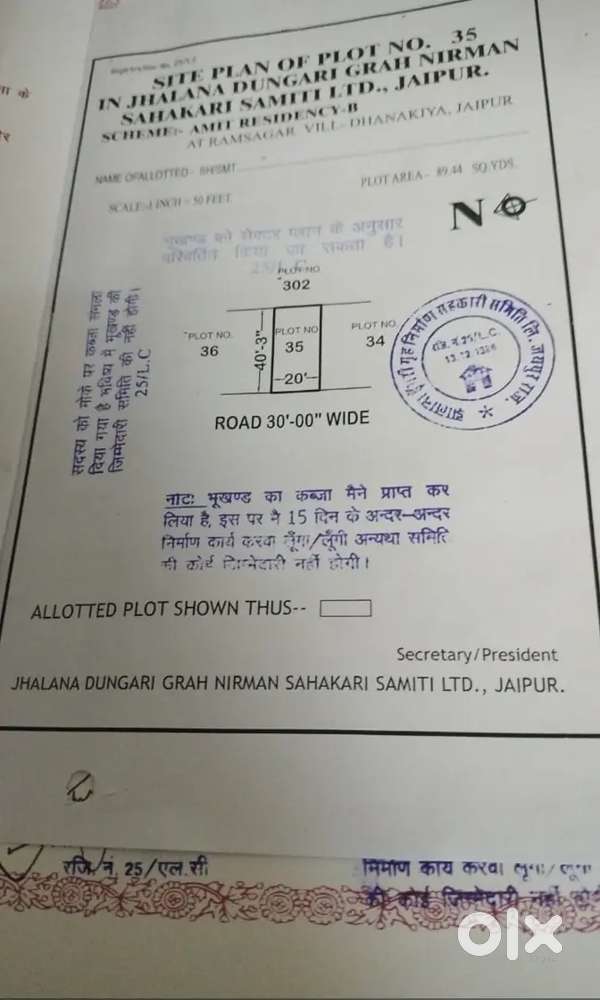 SITE PLAN OF PLOT NO. 35
IN JHALANA DUNGARI GRAH NIRMAN
SAHAKARI SAMITI LTD., JAIPUR.
SCHEME:- AMIT RESIDENCY-B
AT RAMSAGAR VILL- DHANAKIYA, JAIPUR
NAME OF ALLOTTED - SH/SMT
PLOT AREA - 89.44 SQ.YDS.
SCALE-1 INCH = 50 FEET
N
भूखण्ड को सेक्टर प्लान के अनुसार
परिवर्तित किया जा सकता है।
25/L.C
PLOT NO
302
PLOT NO.
36
40'-3"
PLOT NO
35
20'
PLOT NO.
34
ROAD 30'-00" WIDE
सदस्य को मौके पर कब्जा संभला
दिया गया है भविष्य में भूखण्ड की
जिम्मेदारी समिति की नहीं होगी।
25/L.C
गृह निर्माण सहकारी समिति लि. जयपुर राज.
रजि. नं.25/L.C.
नोट: भूखण्ड का कब्जा मैने प्राप्त कर
लिया है, इस पर मै 15 दिन के अन्दर-अन्दर
निर्माण कार्य करवा लूँगा/लूँगी अन्यथा समिति
की कोई जिम्मेदारी नहीं होगी।
ALLOTTED PLOT SHOWN THUS--
Secretary/President
JHALANA DUNGARI GRAH NIRMAN SAHAKARI SAMITI LTD., JAIPUR.
रजि. नं. 25/एल.सी
निर्माण काय करवा लूगा/लूगा
की कोई जिम्मेदारी नहीं
olx